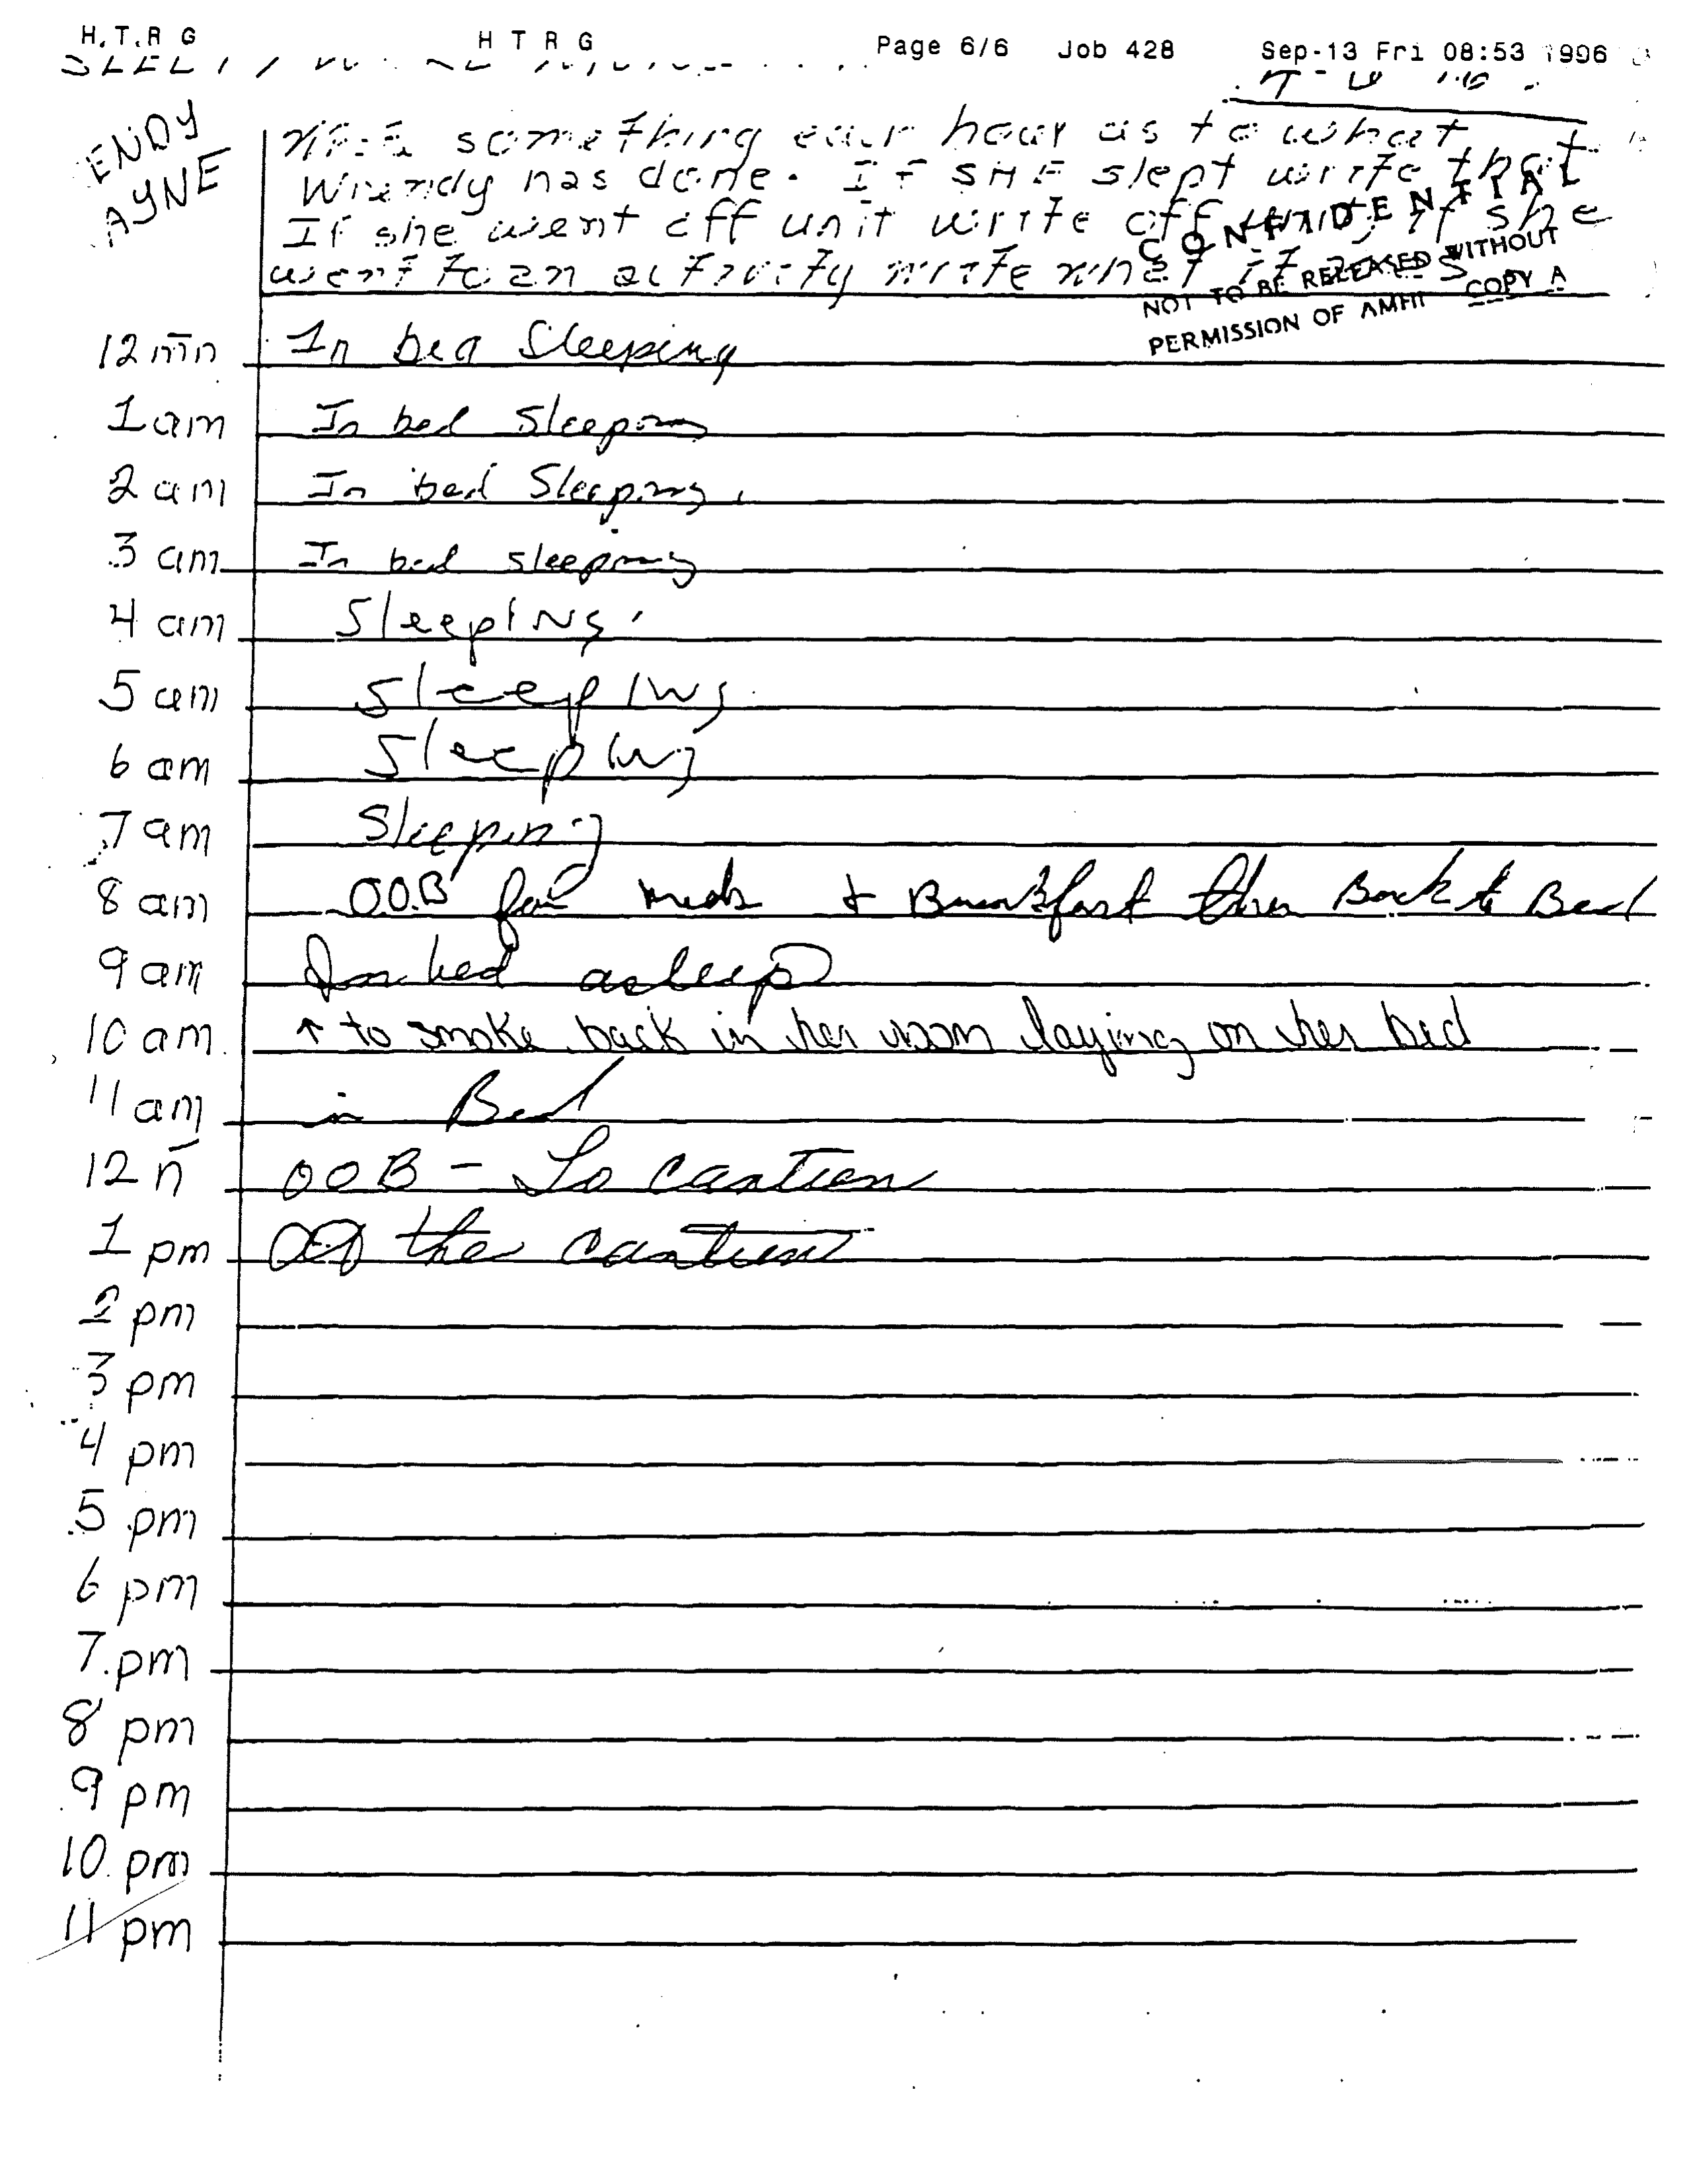 H.T.R G H T R G Page 6/6 Job 428 Sep-13 Fri 08:53 1996
ENDY
AYNE
something each hour as to what
Wendy has done. If SHE slept write that
If she went off unit write off unit, if she
went to an activity write what it was
CONFIDENTIAL
NOT TO BE RELEASED WITHOUT
PERMISSION OF AMHI COPY A
12 mn In bed Sleeping
1 am In bed Sleeping
2 am In bed Sleeping.
3 am In bed sleeping
4 am Sleeping
5 am Sleeping
6 am Sleeping
7 am Sleeping
8 am O.O.B for meds + Breakfast then Back to Bed
9 am In bed asleep
10 am ↑ to smoke back in her room laying on her bed
11 am in Bed
12 n OOB - To cantien
1 pm At the cantien
2 pm
3 pm
4 pm
5 pm
6 pm
7 pm
8 pm
9 pm
10 pm
11 pm